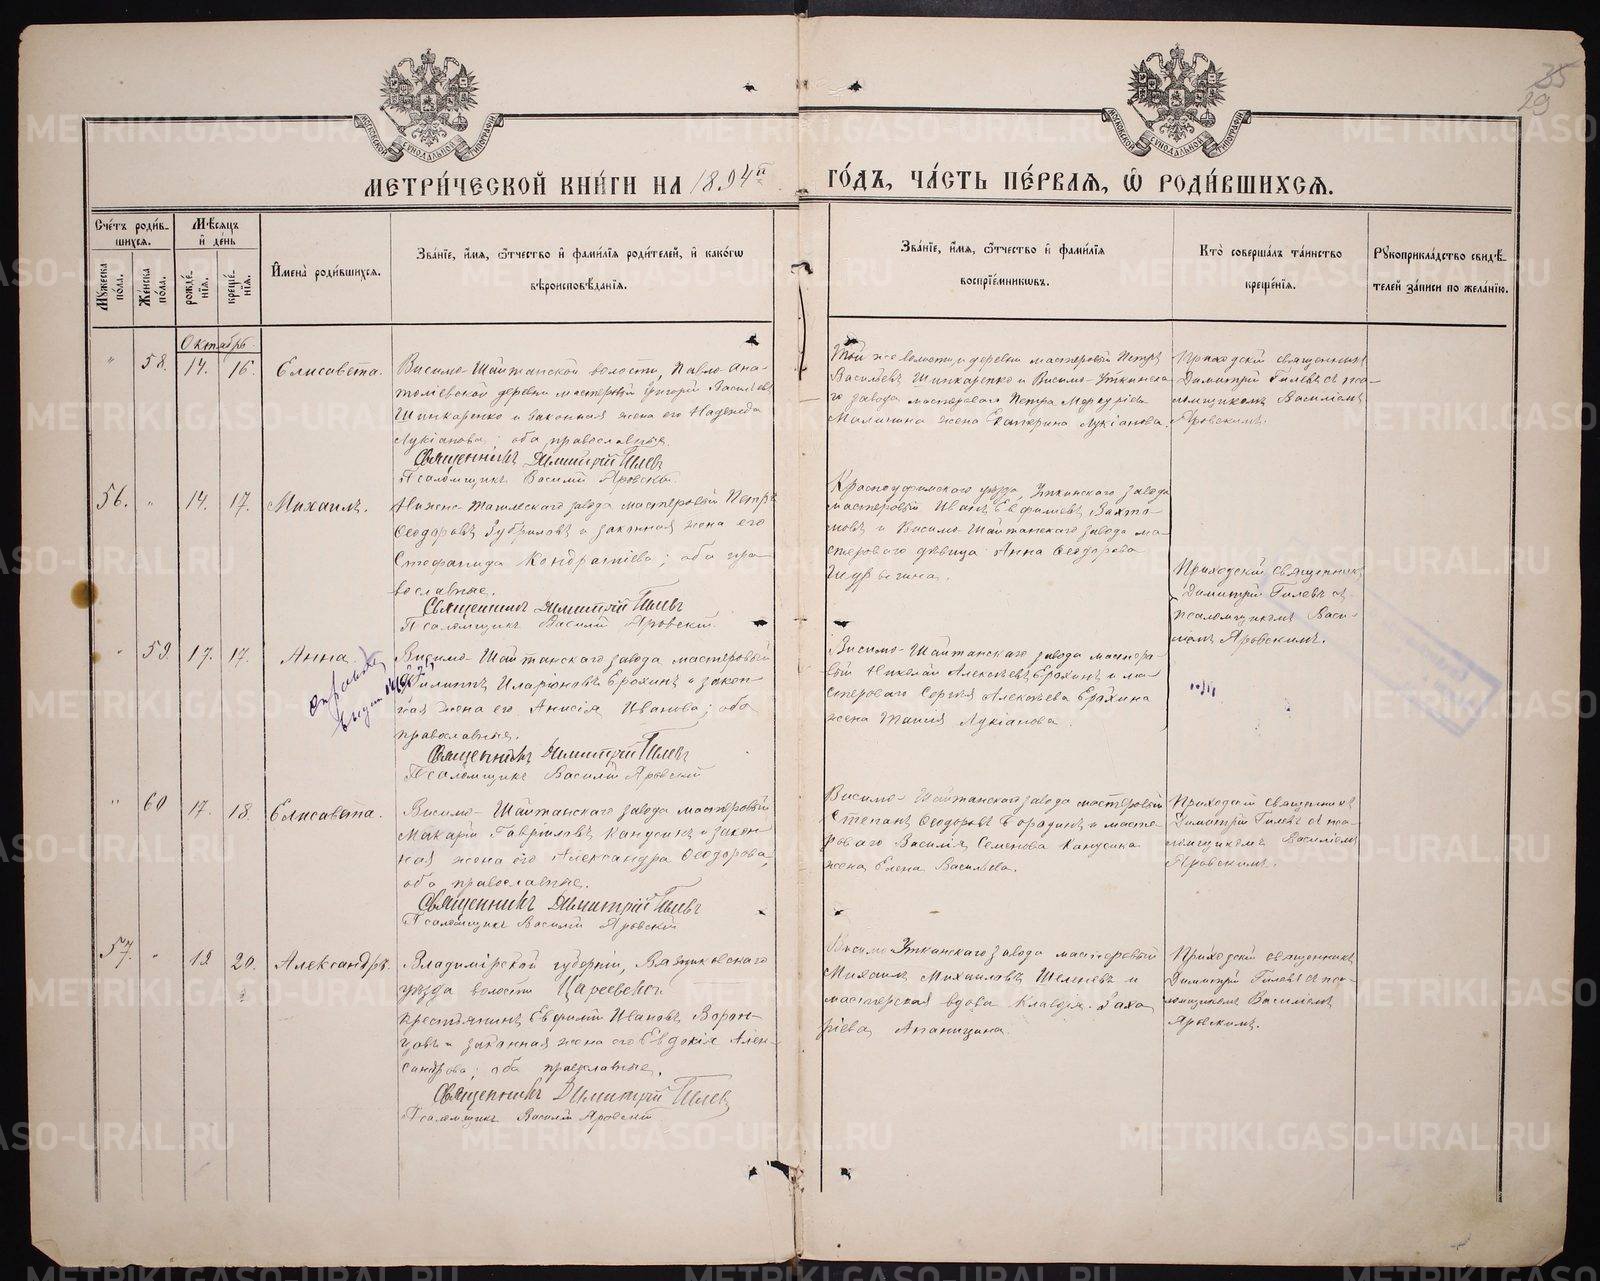 35
29
МЕТРИ́ЧЕСКОЙ КНИ́ГИ НА 1894й ГО́ДЪ, ЧА́СТЬ ПЕ́РВАЯ, Ѡ РОДИ́ВШИХСЯ.
Сче́тъ роди́вшихся.
Му́жеска по́ла.
Же́нска по́ла.
Мѣ́сяцъ и де́нь
рожде́нїя.
креще́нїя.
И́мена роди́вшихся.
Зва́нїе, и́мя, ѻ́тчество и фами́лїя роди́телей, и како́гѡ
вѣроисповѣ́данїя.
Зва́нїе, и́мя, ѻ́тчество и фами́лїя
воспрїе́мниковъ.
Кто̀ соверша́лъ та́инство
креще́нїя.
Рукоприкла́дство свидѣ́телей за́писи по жела́нїю.
Октябрь
" 58. 14. 16. Елисавета.
Висимо-Шайтанской волости, Павло-Ана-
толіевской деревни мастеровый Григорій Васильевъ
Шинкаренко и законная жена его Надежда
Лукіанова; оба православные.
Священникъ Димитрій Гилевъ
Псаломщикъ Василій Яровскій.
Той же волости и деревни мастеровый Петръ
Васильевъ Шинкаренко и Висимо-Уткинска-
го завода мастероваго Петра Меркуріева
Малинина жена Екатерина Лукіанова.
Приходскій священникъ
Димитрій Гилевъ съ пса-
ломщикомъ Василіемъ
Яровскимъ.
56. " 14. 17. Михаилъ.
Нижне-Тагильскаго завода мастеровый Петръ
Ѳеодоровъ Губриловъ и законная жена его
Стефанида Кондратіева; оба пра-
вославные.
Священникъ Димитрій Гилевъ
Псаломщикъ Василій Яровскій.
Красноуфимскаго уѣзда, Уткинскаго завода
мастеровый Иванъ Евфиміевъ
и Висимо-Шайтанскаго завода ма-
стероваго дѣвица Анна Ѳеодорова
Приходскій священникъ
Димитрій Гилевъ съ
псаломщикомъ Васи-
ліемъ Яровскимъ.
" 59. 17. 17. Анна.
Висимо-Шайтанскаго завода мастеровый
Филиппъ Иларіоновъ Ерохинъ и закон-
ная жена его Анисія Иванова; оба
православные.
Священникъ Димитрій Гилевъ
Псаломщикъ Василій Яровскій
Висимо-Шайтанскаго завода мастеро-
вый Николай Алексѣевъ Ерохинъ и ма-
стероваго Сергія Алексѣева Ерохина
жена Таисія Лукіанова.
" 60 17. 18. Елисавета.
Висимо-Шайтанскаго завода мастеровый
Макарій Гавриловъ Канусинъ и закон-
ная жена его Александра Ѳеодорова;
оба православные.
Священникъ Димитрій Гилевъ
Псаломщикъ Василій Яровскій
Висимо-Шайтанскаго завода мастеровый
Степанъ Ѳеодоровъ Бородинъ и масте-
роваго Василія Семенова Канусина
жена Елена Васильева.
Приходскій священникъ
Димитрій Гилевъ съ пса-
ломщикомъ Василіемъ
Яровскимъ.
57. " 19 20. Александръ.
Владимірской губерніи, Вязниковскаго
уѣзда волости
крестьянинъ Евфимій Ивановъ Ворон-
цовъ и законная жена его Евдокія Алек-
сандрова; оба православные.
Священникъ Димитрій Гилевъ
Псаломщикъ Василій Яровскій
Висимо-Уткинскаго завода мастеровый
Михаилъ Михаиловъ и
мастерская вдова Клавдія Заха-
ріева Ананьина.
Приходскій священникъ
Димитрій Гилевъ съ пса-
ломщикомъ Василіемъ
Яровскимъ.
METRIKI.GASO-URAL.RU